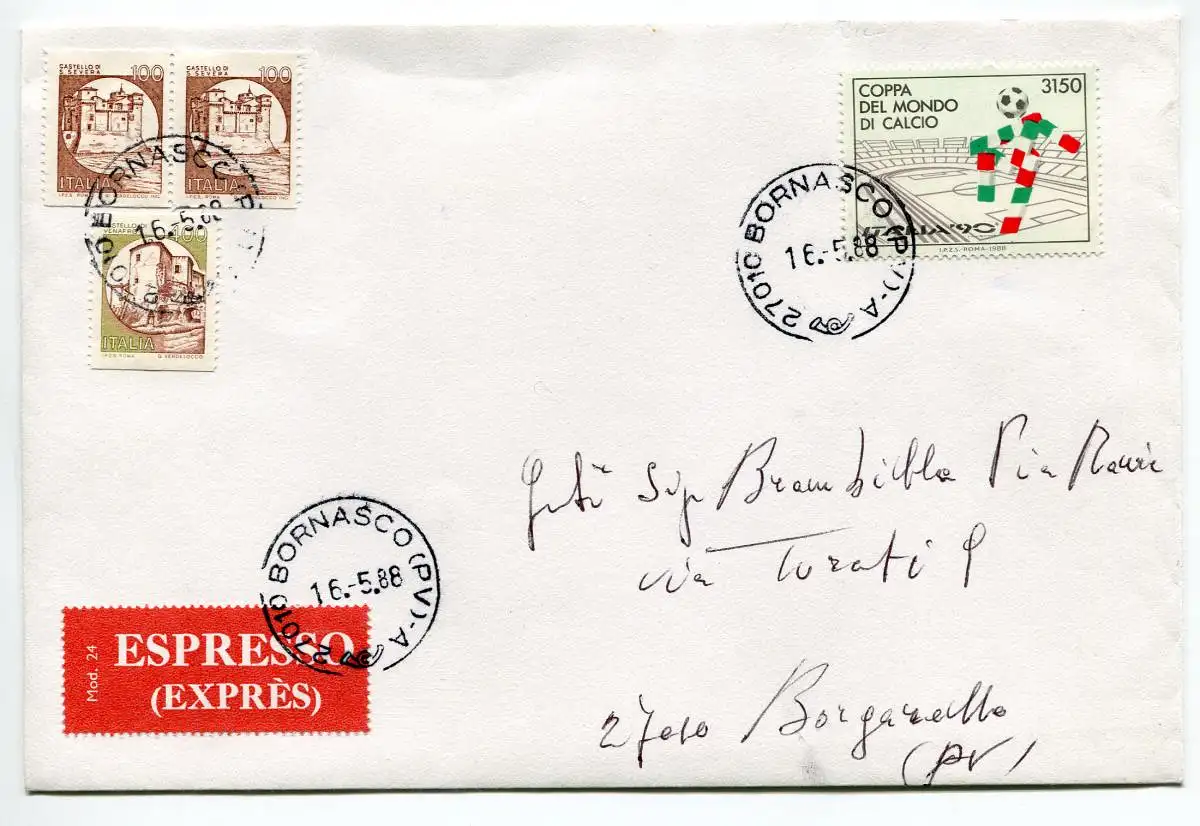 CASTELLO DI
S. SEVERA 100
ITALIA
I.P.Z.S. ROMA
CASTELLO DI
S. SEVERA 100
ITALIA
CASTELLO DI
VENAFRO 400
ITALIA
I.P.Z.S. ROMA G. VERDELOCCO
BORNASCO (P
16.-5.88
COPPA
DEL MONDO
DI CALCIO
3150
ITALIA '90
I.P.Z.S.-ROMA-1988
27010 BORNASCO (PV)-A
16.-5.88
Sig Brambilla Pia Maria
via Turati 9
27010 Borgarello
(PV)
27010 BORNASCO (PV)-A
16.-5.88
Mod. 24
ESPRESSO
(EXPRÈS)